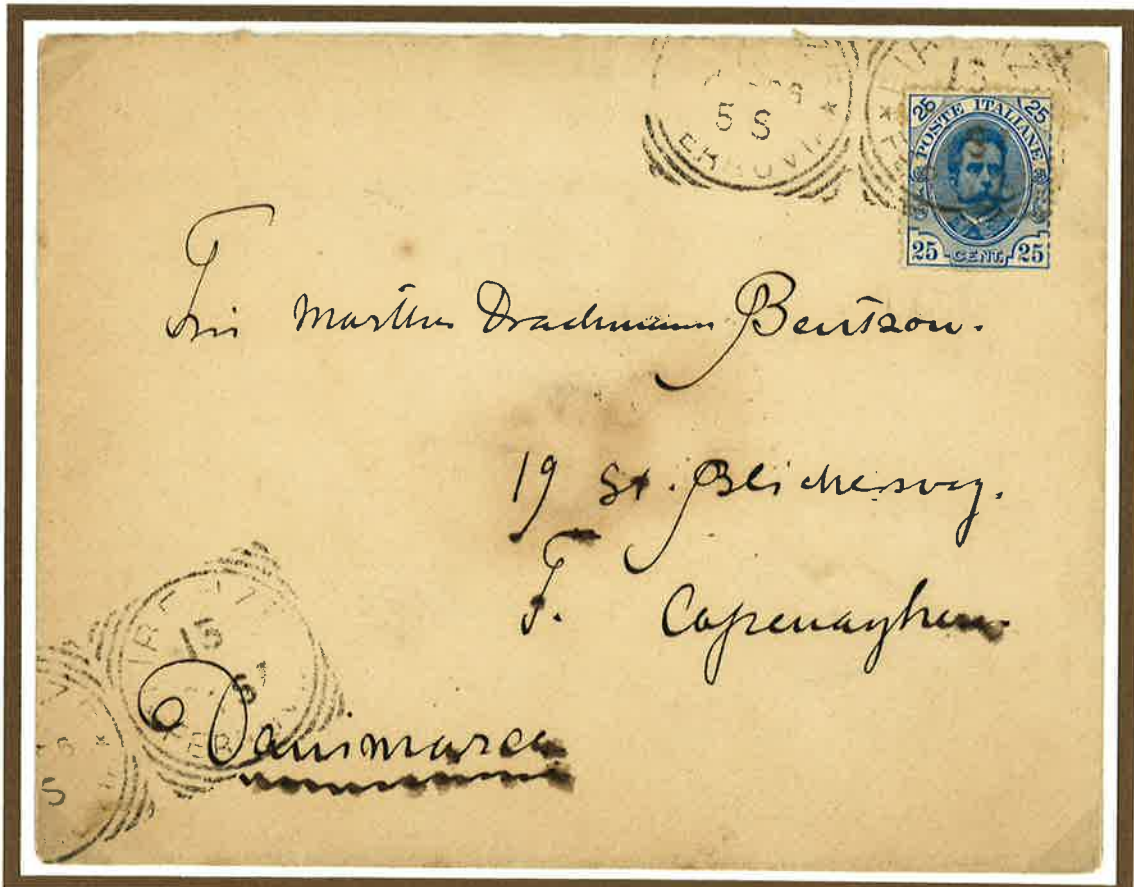 5 S
FERROVIA
15
25 POSTE ITALIANE 25
25 CENT. 25
Frü Martha Drachmann Bentzon.
19 St. Blichersvej.
F. Copenaghen.
15
S
Danimarca
S